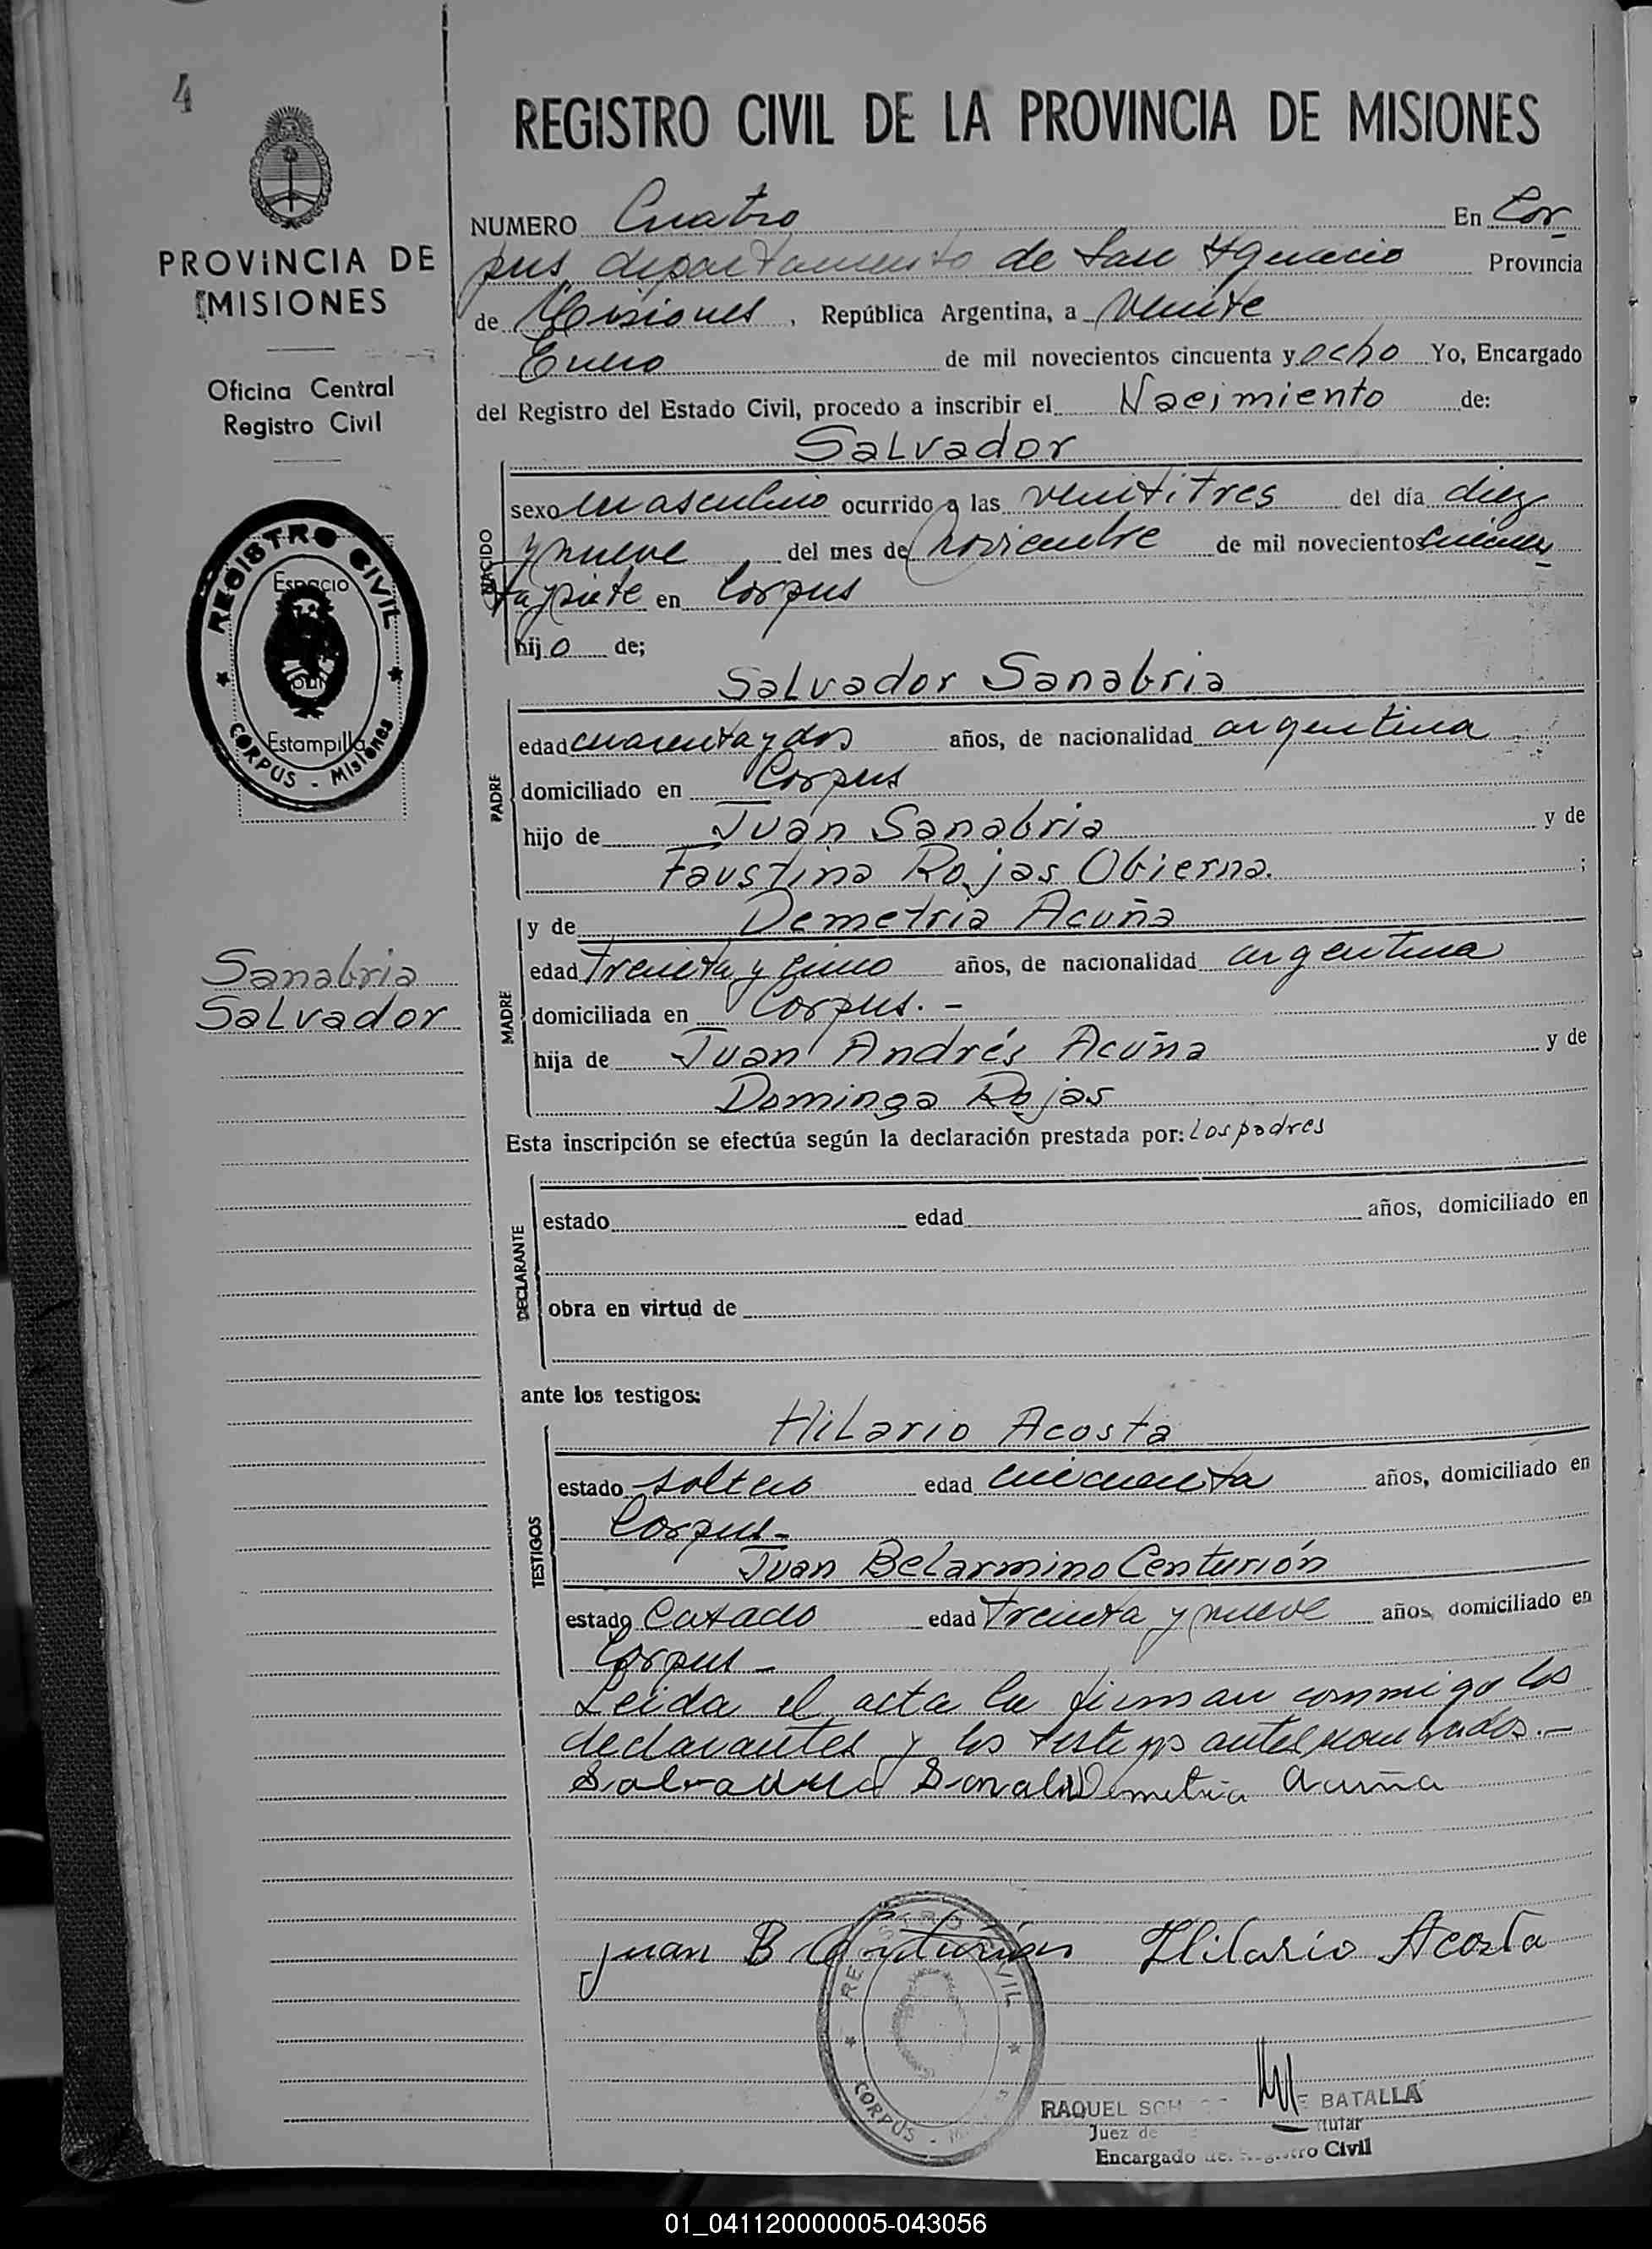 4
REGISTRO CIVIL DE LA PROVINCIA DE MISIONES
PROVINCIA DE
MISIONES
Oficina Central
Registro Civil
REGISTRO CIVIL
Espacio
Estampilla
CORPUS - Misiones
Sanabria
Salvador
NUMERO Cuatro En Cor
pus departamento de San Ygnacio Provincia
de Misiones, República Argentina, a veinte
Enero de mil novecientos cincuenta y ocho Yo, Encargado
del Registro del Estado Civil, procedo a inscribir el Nacimiento de:
Salvador
NACIDO
sexo masculino ocurrido a las veintitres del día diez
y nueve del mes de noviembre de mil novecientos cincuen
ta y siete en Corpus
hijo de;
Salvador Sanabria
PADRE
edad cuarenta y dos años, de nacionalidad argentina
domiciliado en Corpus
hijo de Juan Sanabria y de
Faustina Rojas Obierna.;
MADRE
y de Demetria Acuña
edad treinta y cinco años, de nacionalidad argentina
domiciliada en Corpus.-
hija de Juan Andrés Acuña y de
Dominga Rojas
Esta inscripción se efectúa según la declaración prestada por: Los padres
DECLARANTE
estado edad años, domiciliado en
obra en virtud de
ante los testigos:
Hilario Acosta
TESTIGOS
estado soltero edad cincuenta años, domiciliado en
Corpus-
Juan Belarmino Centurión
estado Casado edad treinta y nueve años, domiciliado en
Corpus-
Leida el acta la firman conmigo los
declarantes y los testigos antes nombrados.-
Demetria Acuña
Juan B Centurión Hilario Acosta
CORPUS
RAQUEL SCH E BATALLA
Juez de
Encargado del Registro Civil
01_041120000005-043056